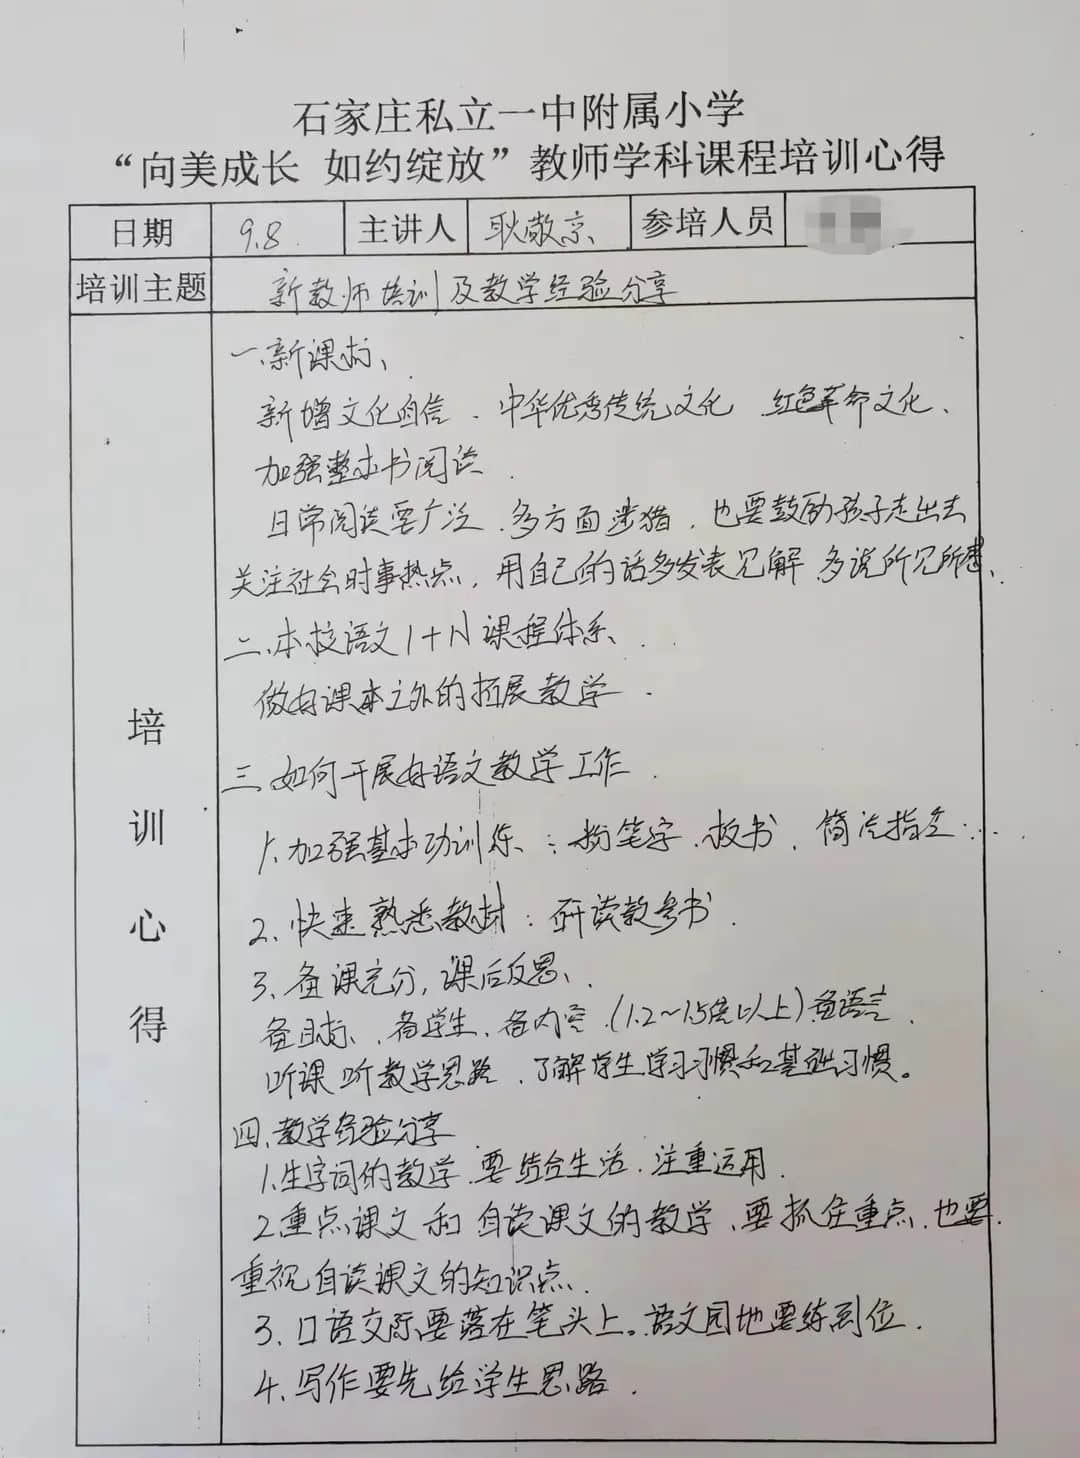 石家庄私立一中附属小学
“向美成长 如约绽放”教师学科课程培训心得
日期 9.8. 主讲人 耿敬京 参培人员
培训主题 新教师培训及教学经验分享
培训心得
一、新课标、
新增文化自信、中华优秀传统文化 红色革命文化、
加强整本书阅读.
日常阅读要广泛、多方面涉猎,也要鼓励孩子走出去
关注社会时事热点,用自己的话多发表见解 多说所见所想、
二、本校语文1+N课程体系、
做好课本之外的拓展教学.
三、如何开展好语文教学工作.
1.加强基本功训练:粉笔字、板书、简洁指令...
2、快速熟悉教材:研读教参书.
3、备课充分,课后反思、
备目标、备学生、备内容、(1.2~1.5倍以上)备语言.
听课听教学思路、了解学生学习习惯和基础习惯。
四、教学经验分享
1.生字词的教学、要结合生活、注重运用.
2.重点课文和自读课文的教学、要抓住重点、也要
重视自读课文的知识点、
3、口语交际要落在笔头上。语文园地要练到位.
4、写作要先给学生思路.